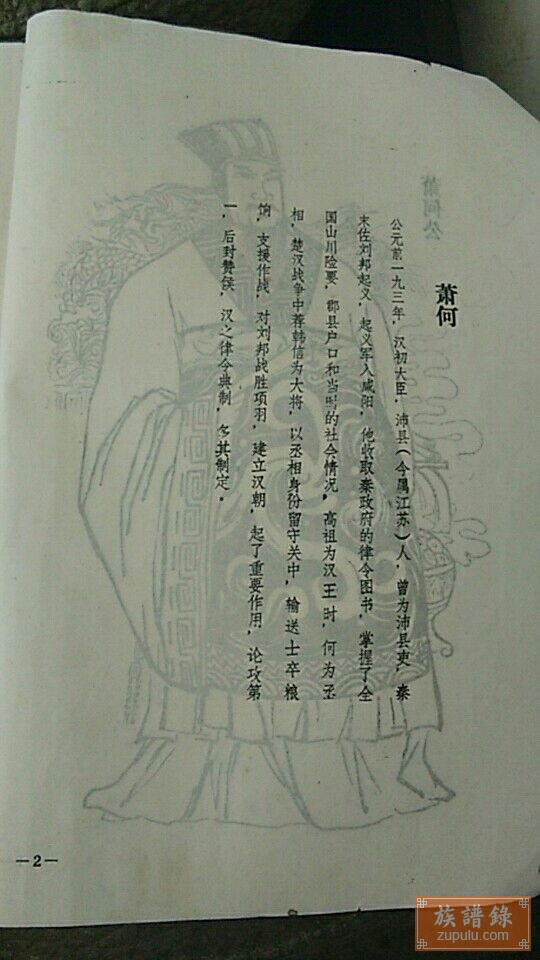 萧何
公元前一九三年，汉初大臣，沛县（今属江苏）人，曾为沛县吏，秦
末佐刘邦起义，起义军入咸阳，他收取秦政府的律令图书，掌握了全
国山川险要，郡县户口和当时的社会情况。高祖为汉王时，何为丞
相，楚汉战争中荐韩信为大将，以丞相身份留守关中，输送士卒粮
饷，支援作战，对刘邦战胜项羽，建立汉朝，起了重要作用，论攻第
一，后封赞侯，汉之律令典制，多其制定。
萧何公
—2—
族譜錄
zupulu.com